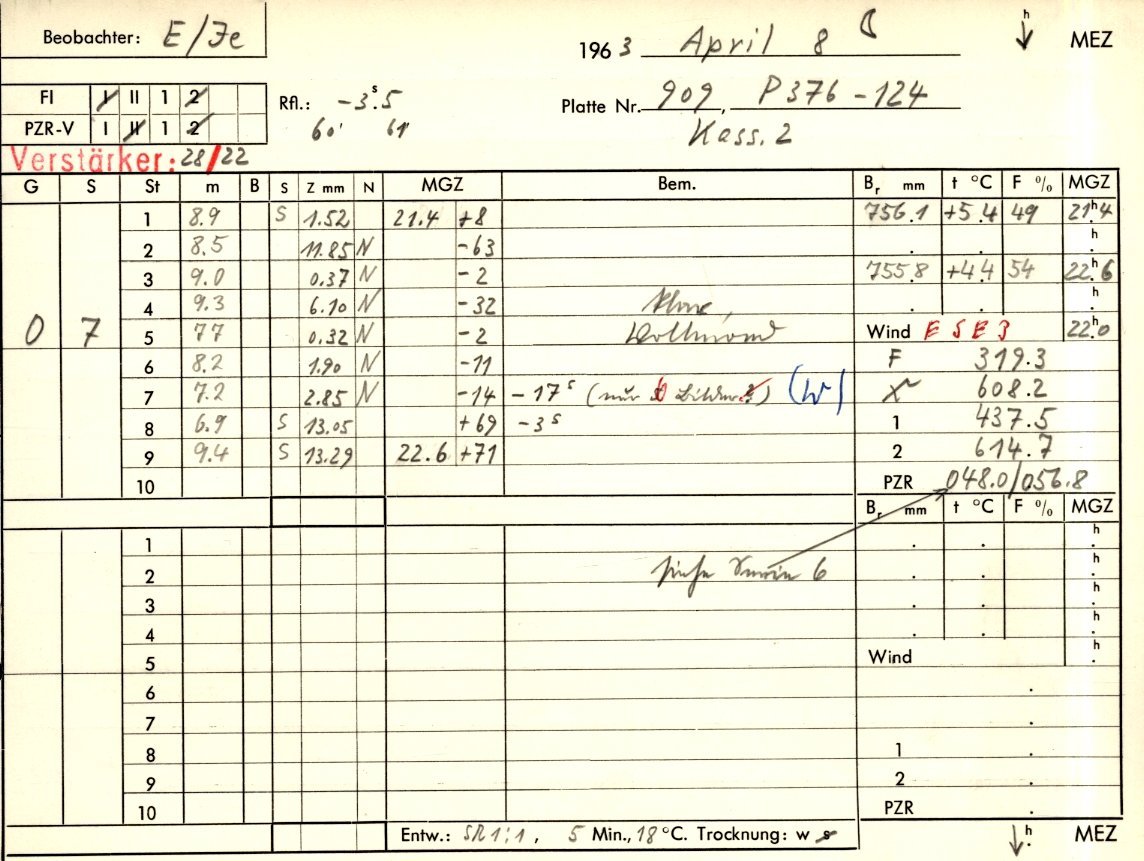 Beobachter: E/Je
1963 April 8 h MEZ
FI I II 1 2
PZR-V I II 1 2
Rfl.: -3ˢ.5
60' 61'
Platte Nr. 909, P376-124
Kass. 2
Verstärker: 28/22
G S St m B S Z mm N MGZ Bem. Bᵣ mm t °C F % MGZ
0 7
1 8.9 S 1.52 21.4 +8 756.1 +5.4 49 21ʰ4
2 8.5 11.85 N -63 . . h.
3 9.0 0.37 N -2 755.8 +4.4 54 22ʰ.6
4 9.3 6.10 N -32 . . h.
5 77 0.32 N -2 Vollmond Wind ESE 3 22ʰ.0
6 8.2 1.90 N -11 F 319.3
7 7.2 2.85 N -14 -17ˢ (nur 6 Bilder) (W) 608.2
8 6.9 S 13.05 +69 -3ˢ 1 437.5
9 9.4 S 13.29 22.6 +71 2 614.7
10 PZR 048.0/056.8
Bᵣ mm t °C F % MGZ
1 . . h.
2 siehe Serie 6 . . h.
3 . . h.
4 . . h.
5 Wind h.
6 .
7 .
8 1 .
9 2 .
10 PZR .
Entw.: SR 1:1, 5 Min., 18 °C. Trocknung: w s h MEZ